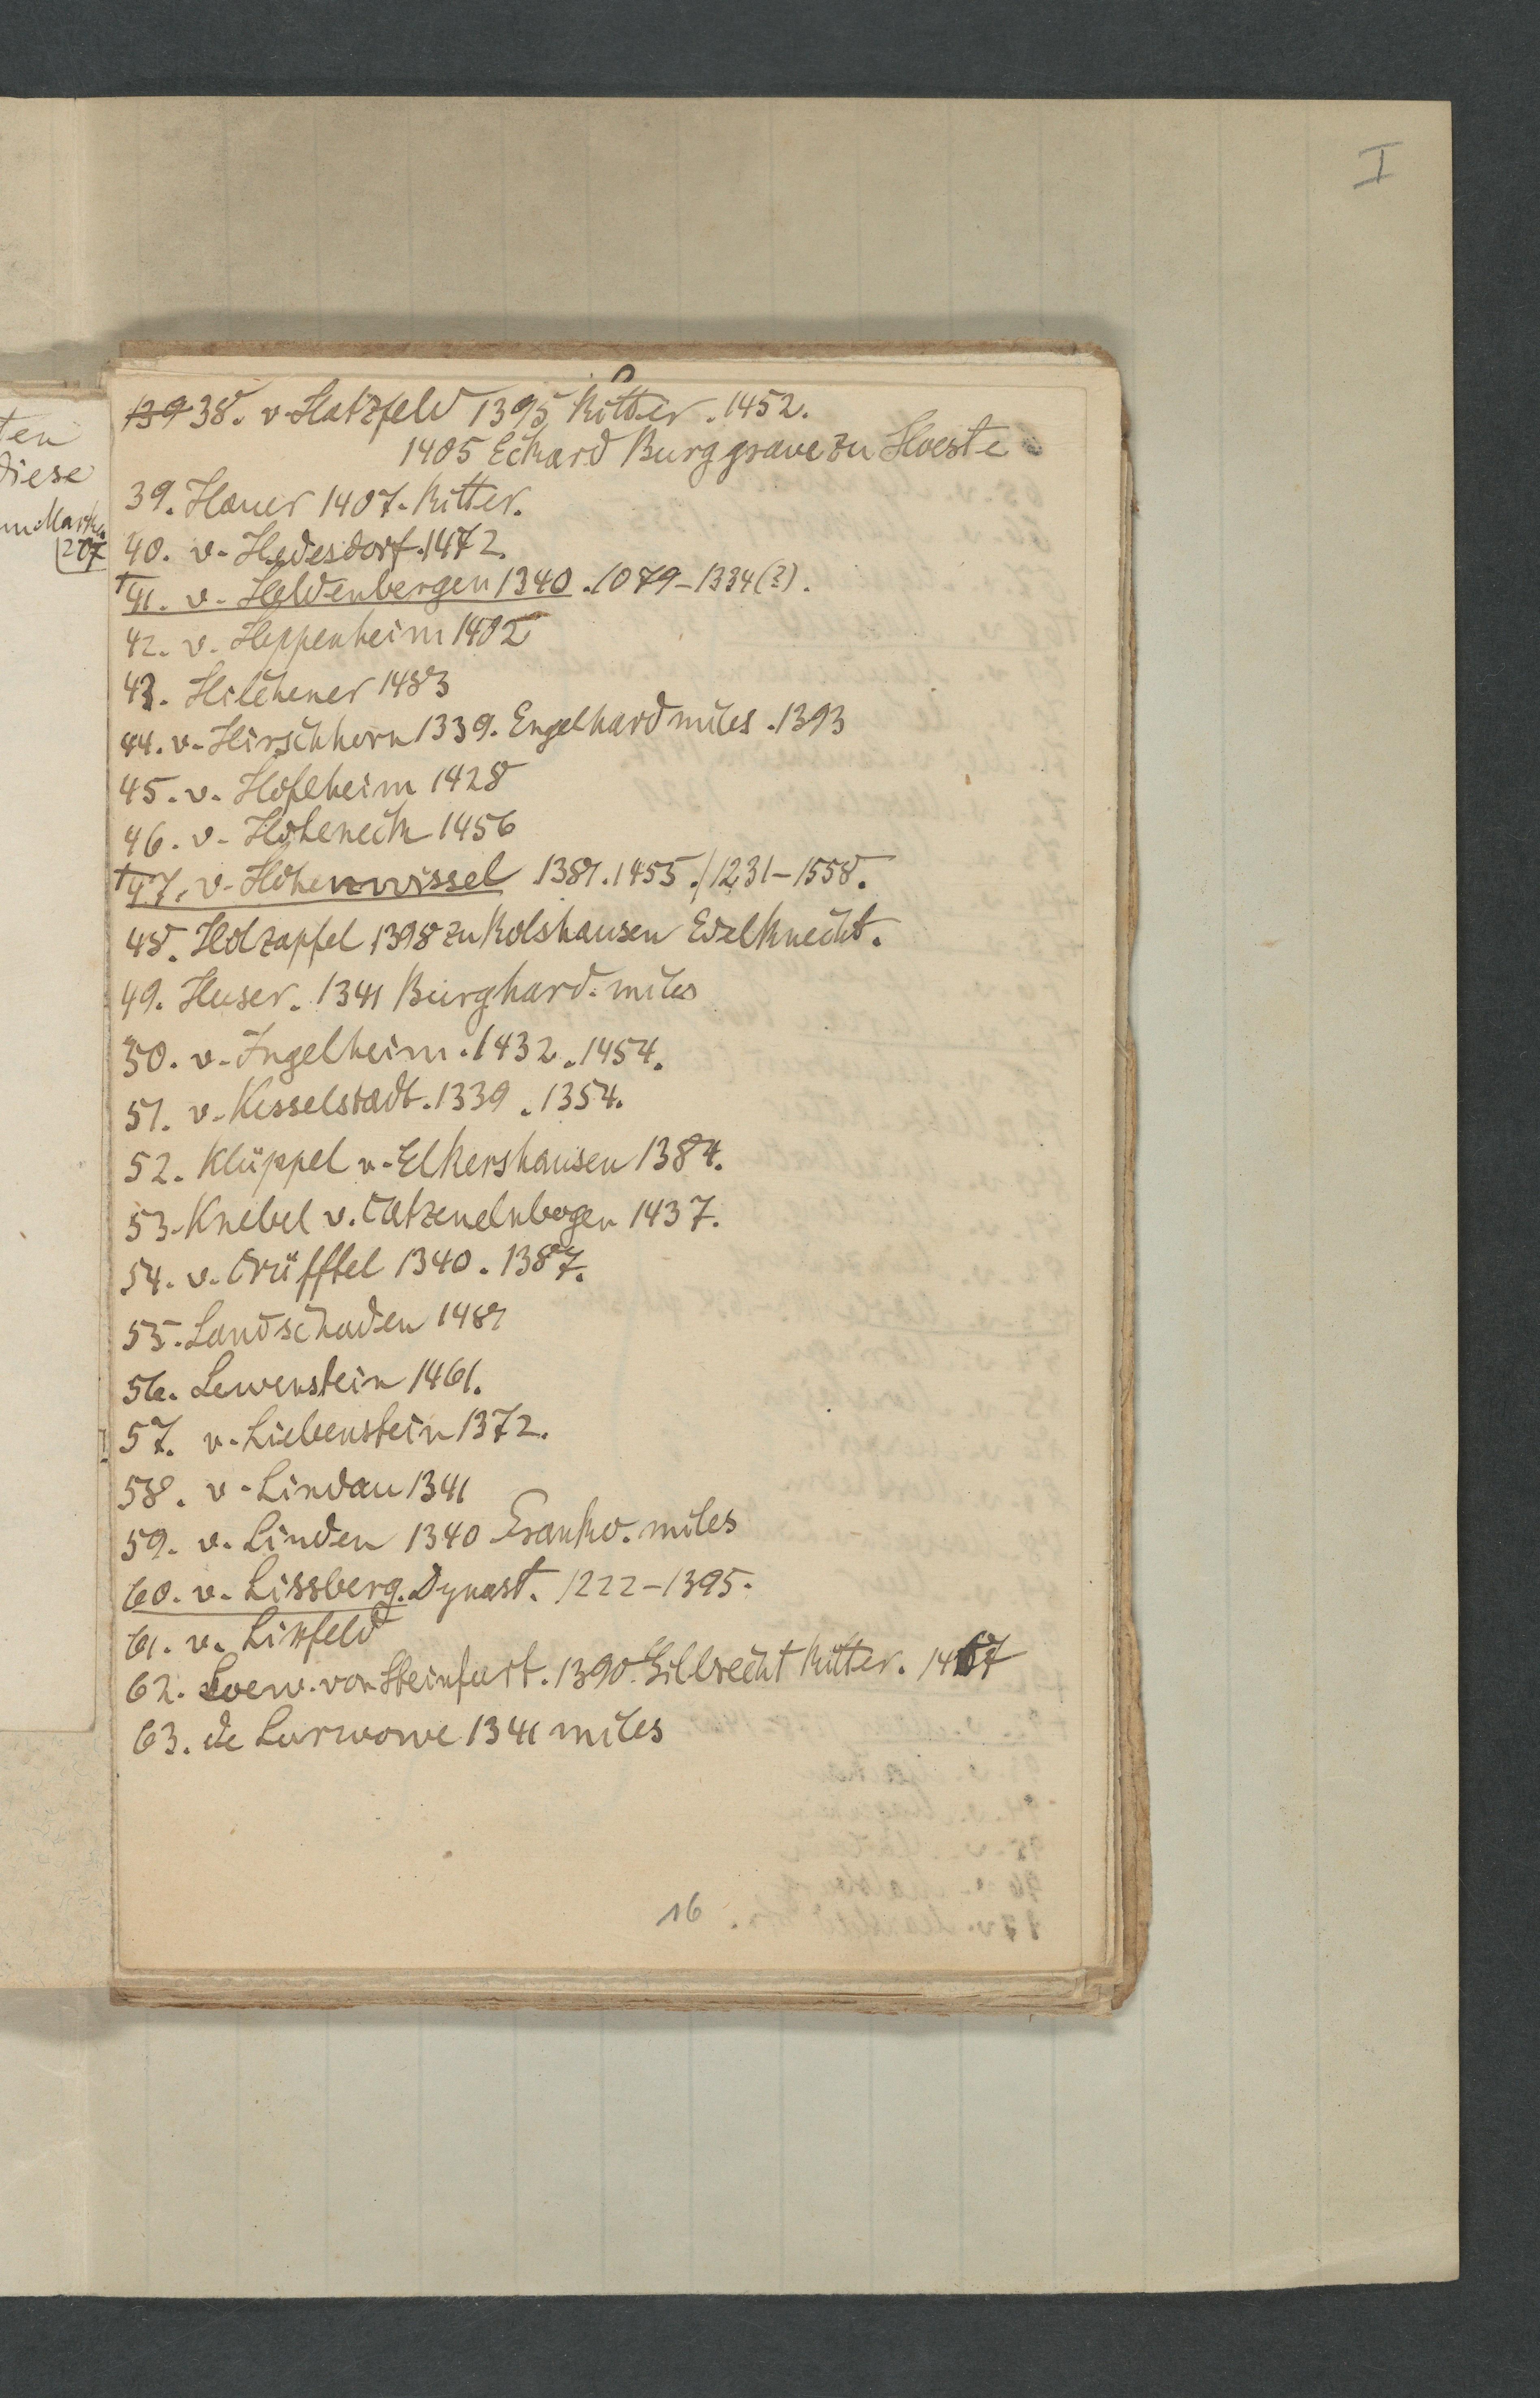 I
ten
diese
m Mark.
207
139 38. v. Hatzfeld 1395 Ritter. 1452.
1405 Eckard Burggrave zu Hoeste
39. Haner 1407. Ritter.
40. v. Hedesdorf. 1472.
† 41. v. Heldenbergen 1340. 1079-1334(?).
42. v. Heppenheim 1402
43. Hilchener 1483
44. v. Hirschhorn 1339. Engelhard miles. 1393
45. v. Hofeheim 1428
46. v. Hoheneck 1456
† 47. v. Hohenwissel 1381. 1455. / 1231-1558.
48. Holzapfel 1398 zu Rolshausen Edelknecht.
49. Huser. 1341 Burghard. miles
50. v. Ingelheim. 1432. 1454.
51. v. Kesselstadt. 1339. 1354.
52. Klüppel v. Elkershausen 1384.
53. Knebel v. Catzenelnbogen 1437.
54. v. Crüfftel 1340. 1387.
55. Landschaden 1481
56. Lewenstein 1461.
57. v. Liebenstein 1372.
58. v. Lindau 1341
59. v. Linden 1340 Franko. miles
60. v. Lissberg. Dynast. 1222-1395.
61. v. Linfeld
62. Loew. von Steinfurt. 1390. Eilbrecht Ritter. 1467
63. de Lurwowe 1341 miles
16